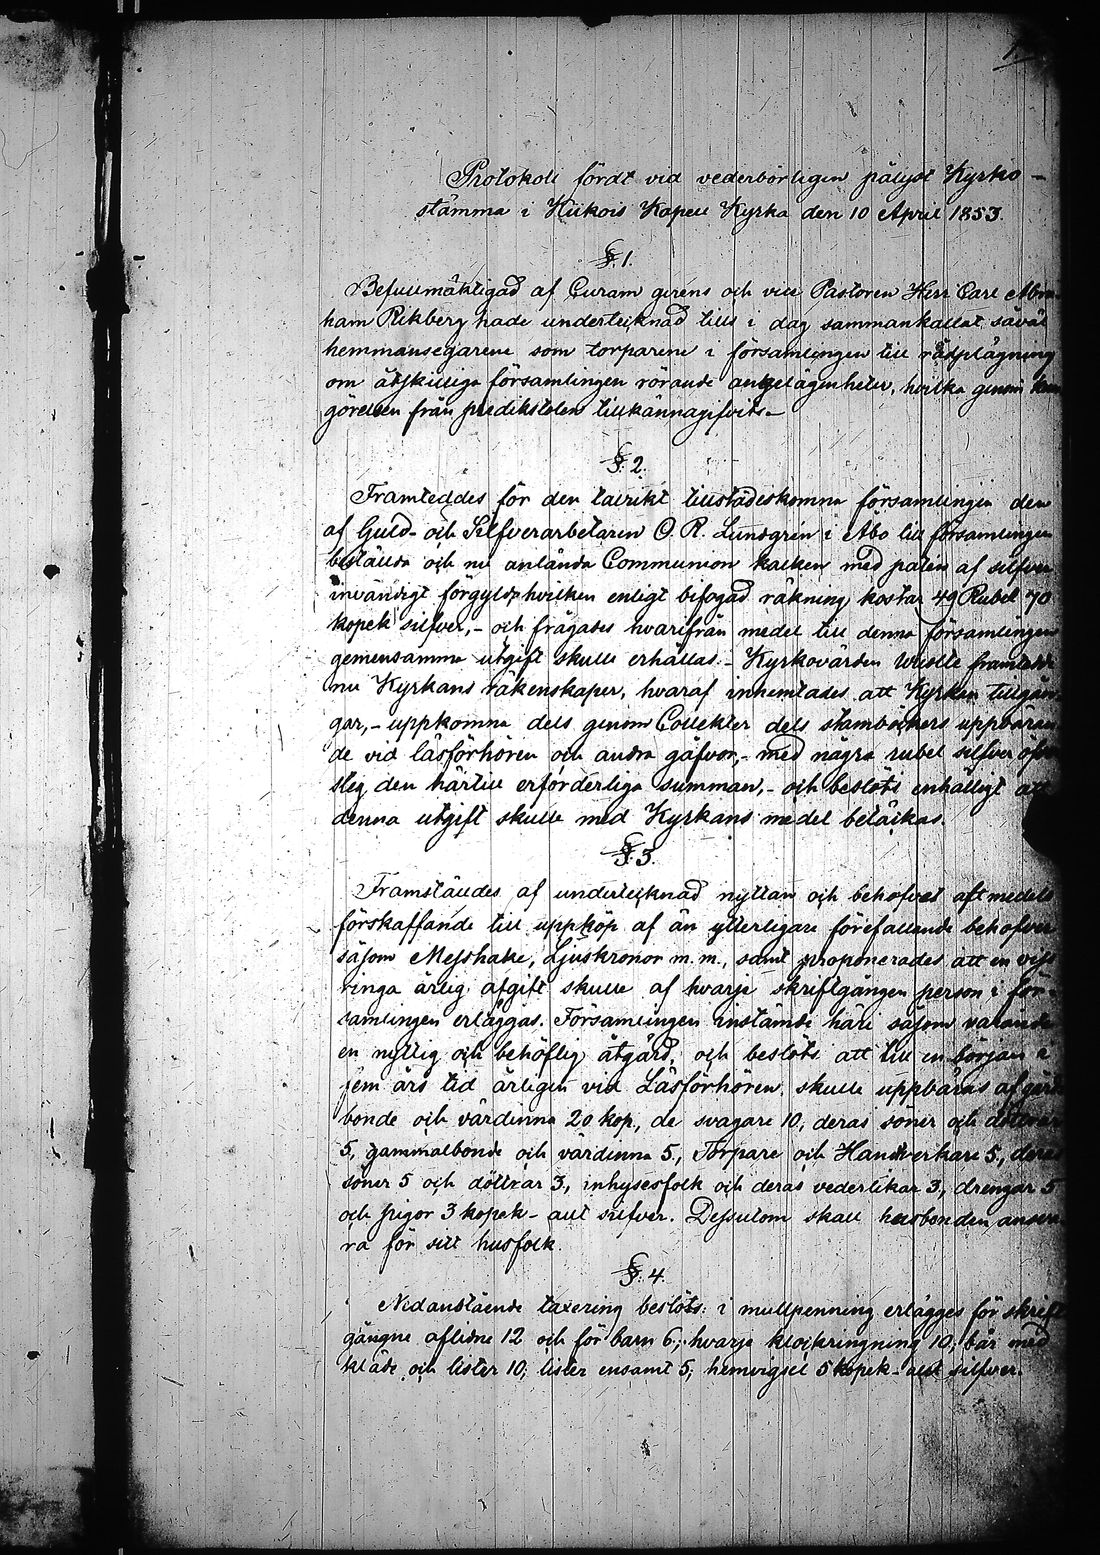 1.
Protokoll fördt vid vederbörligen pålyst Kyrko-
stämma i Hiikois Kapell Kyrka den 10 April 1853.
§. 1.
Befullmäktigad af Curam gerens och vice Pastoren Herr Carl Abra-
ham Rikberg hade undertecknad tills i dag sammankallat såväl
hemmansegarene som torparene i församlingen till rådplägning
om åtskilliga församlingen rörande angelägenheter, hvilka genom kun
görelsen från predikstolen tillkännagifvits.-
§. 2.
Framteddes för den talrikt tillstädeskomna församlingen den
af Guld- och Silfverarbetaren O. R. Lundgrén i Åbo till församlingen
beställda och nu anlända Communion kalken med patén af silfver
invändigt förgyld, hvilken enligt bifogad räkning kostar 49 Rubel 70
kopek silfver,- och frågades hvarifrån medel till denna församlingens
gemensamma utgift skulle erhållas.- Kyrkovärden framtedde
nu Kyrkans räkenskaper, hvaraf inhemtades att Kyrkan tillgån-
gar,- uppkomna dels genom Collekter dels stamböckers uppbäran
de vid läsförhören och andra gåfvor,- med några rubel silfver öfver
steg den härtill erforderliga summan,- och beslöts enhälligt att
denna utgift skulle med Kyrkans medel betäckas.
§. 3.
Framställdes af undertecknad nyttan och behofvet af medels
förskaffande till uppköp af än ytterligare förefallande behofver
såsom Messhake, Ljuskronor m. m., samt proponerades att en viss
ringa årlig afgift skulle af hvarje skriftgången person i för-
samlingen erläggas. Församlingen instämde häri såsom varande
en nyttig och behöflig åtgärd, och beslöts att till en början i
fem års tid årligen vid Läsförhören skulle uppbäras af gård
bonde och värdinna 20 kop, de svagare 10, deras söner och döttrar
5, gammalbonde och värdinna 5, Torpare och Handverkare 5, deras
söner 5 och döttrar 3, inhysesfolk och deras vederlikar 3, drengar 5
och pigor 3 kopek - allt silfver. Dessutom skall husbonden ansva-
ra för sitt husfolk.
§. 4.
Nedanstående taxering beslöts: i mullpenning erlägges för skrift
gångne aflidne 12 och för barn 6; hvarje klockringning 10; bår med
kläde och lister 10; lister ensamt 5; hemvigsel 5 kopek - allt silfver.